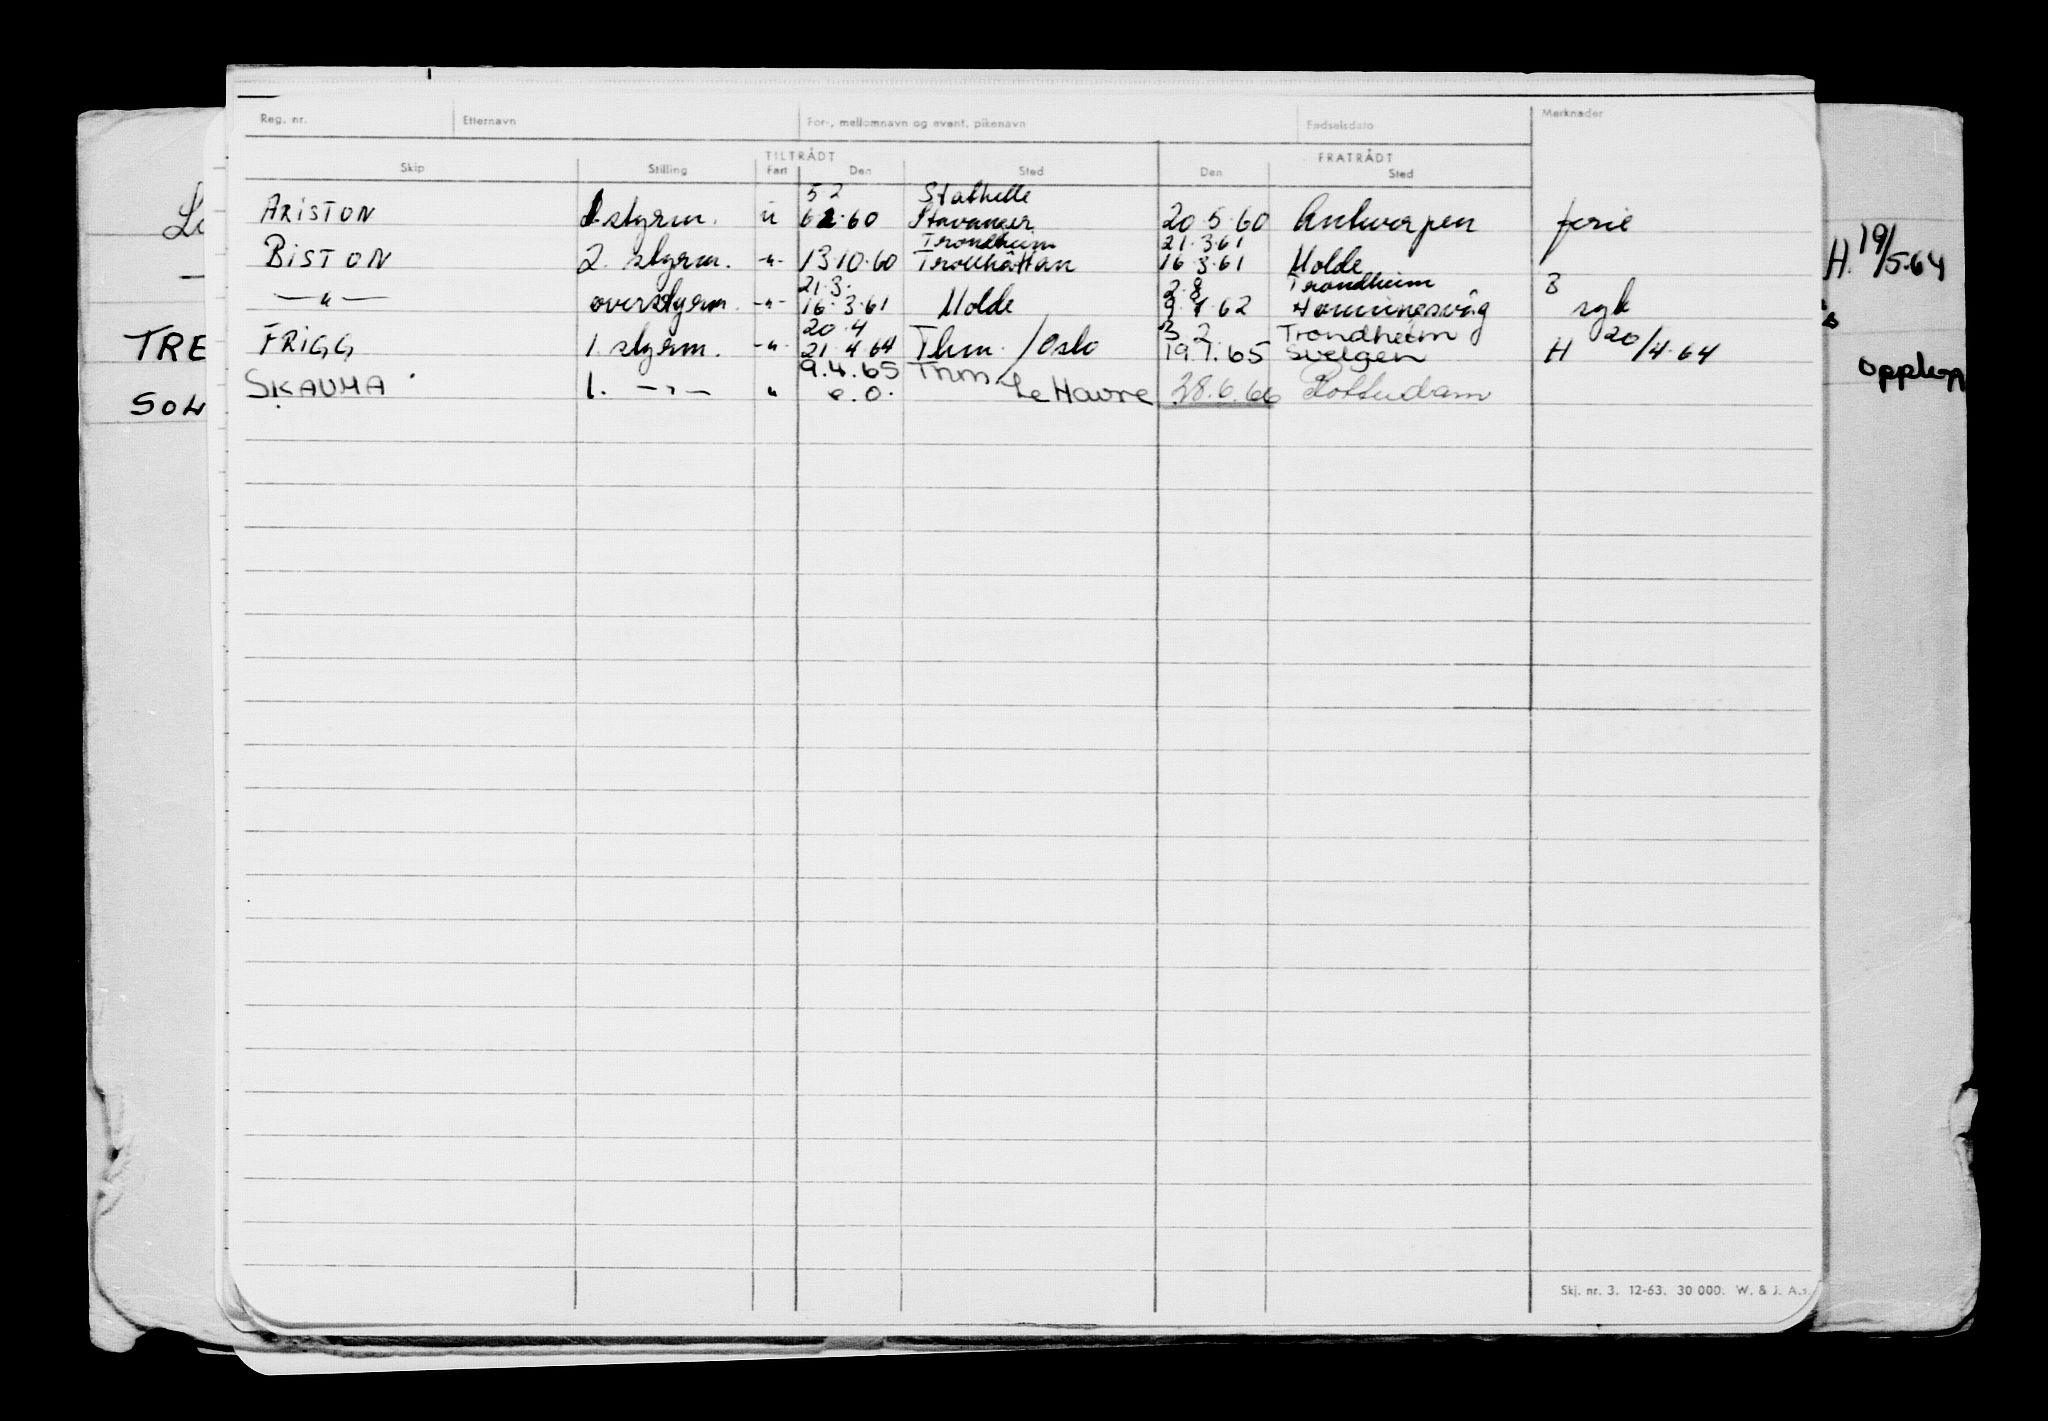 Reg. nr. Etternavn For-, mellomnavn og event. pikenavn Fødselsdato Merknader
TILTRÅDT FRATRÅDT
Skip Stilling Fart Den Sted Den Sted
5 2 Stathelle
ARISTON styrm. u 6 2.60 Stavanger 20.5.60 Antwerpen ferie
Trondheim 21.3.61
BISTON 2. styrm. -"- 13.10.60 Trollhättan 16.3.61 Molde
21.3. 2.8 Trondheim 3
-"- overstyrm. -"- 16.3.61 Molde 9.7.62 Honningsvåg syk
20.4 3.2. Trondheim
FRIGG 1. styrm. -"- 21.4.64 Thm. /Oslo 19.1.65 Svelgen H 20/4.64
9.4.65 Trhm.
SKAUMA 1. -"- " e.o. Le Havre 28.6.66 Rotterdam
H. 19/5.64
TRE
SOL
oppløp
Skj. nr. 3. 12-63. 30 000. W. & J. A.s.